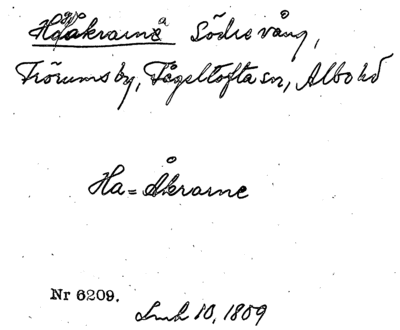 Haåkrarne Södre vång,
Frörums by, Fågeltofta sn, Albo hd
Ha=Åkrarne
Nr 6209.
10, 1809